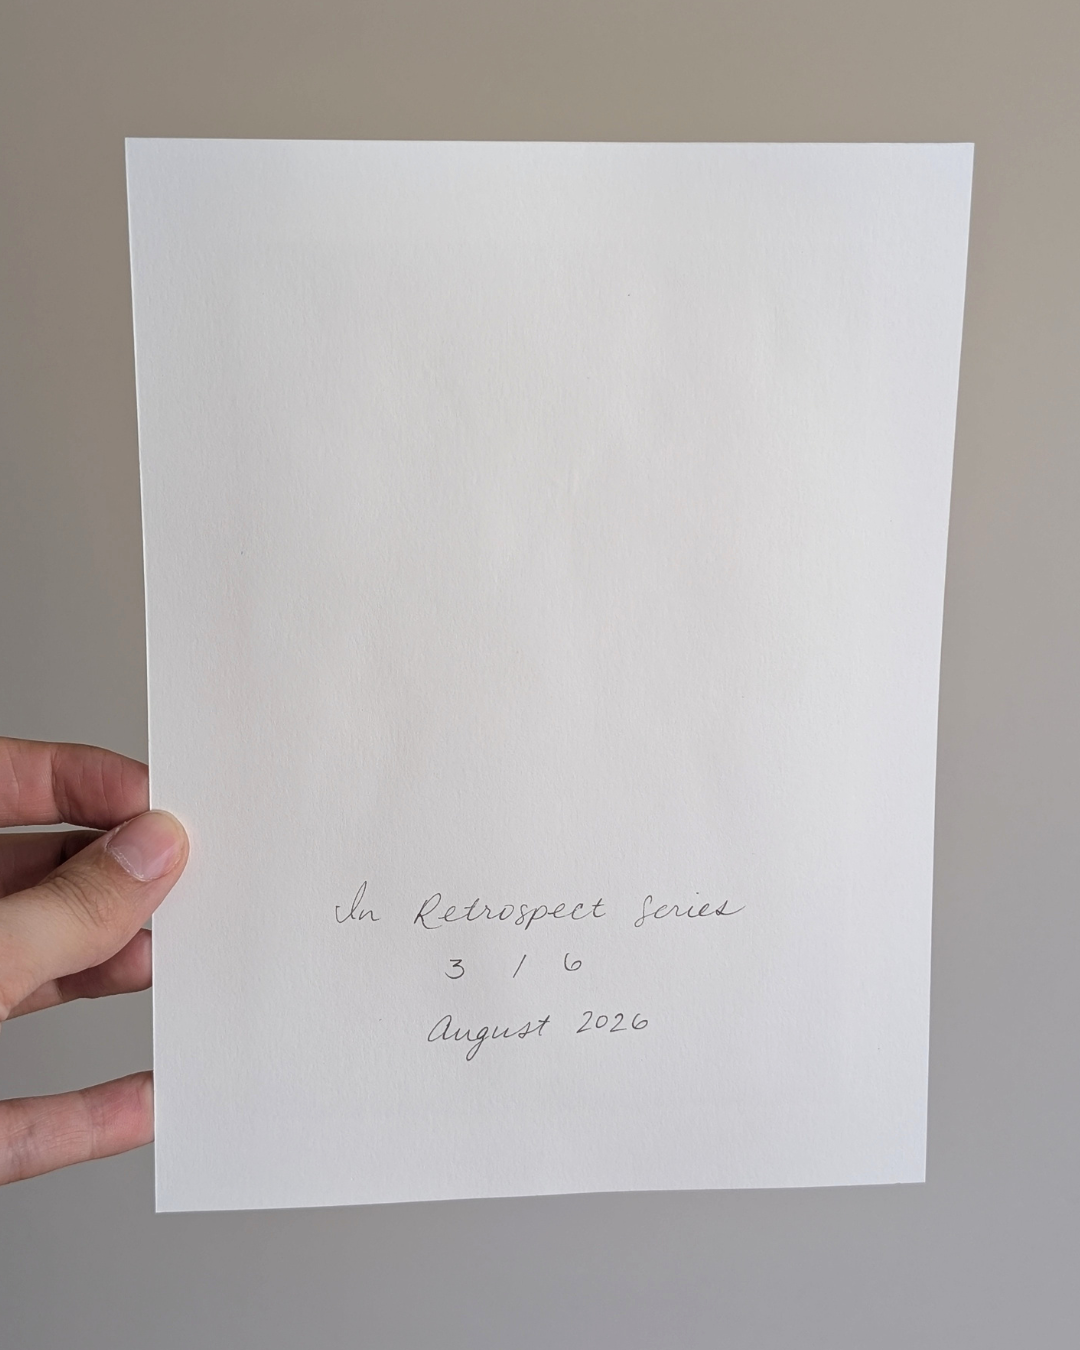 In Retrospect Series
3 / 6
August 2026